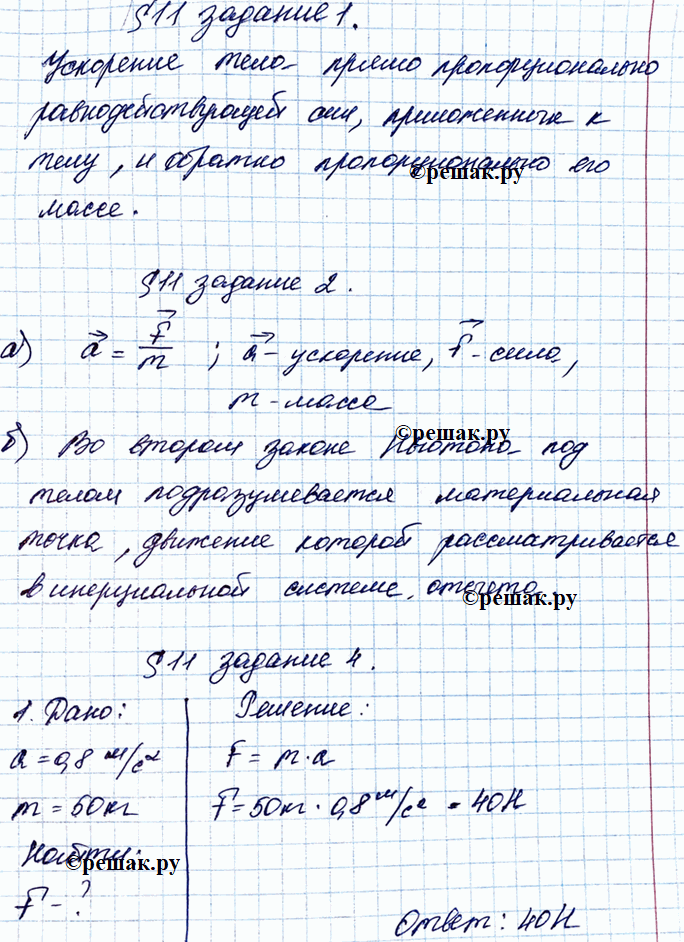 §11 задание 1.
Ускорение тела прямо пропорционально
равнодействующей сил, приложенных к
телу, и обратно пропорционально его
©решак.ру
массе.
§11 задание 2.
а) a⃗ = F⃗/m ; a⃗ - ускорение, F⃗ - сила,
m - масса
©решак.ру
б) Во втором законе Ньютона под
телом подразумевается материальная
точка, движение которой рассматривается
в инерциальной системе отсчета.
©решак.ру
§11 задание 4.
1. Дано:
a = 0,8 м/с²
m = 50 кг
Найти:
©решак.ру
F - ?
Решение:
F = m·a
F = 50 кг · 0,8 м/с² = 40 Н
Ответ: 40 Н